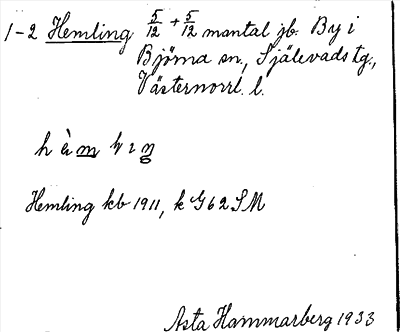 1-2 Hemling 5/12 + 5/12 mantal jb. By i
Björna sn., Själevads tg.,
Västernorrl. l.
Hemling kb 1911, k G62 SM
Asta Hammarberg 1933